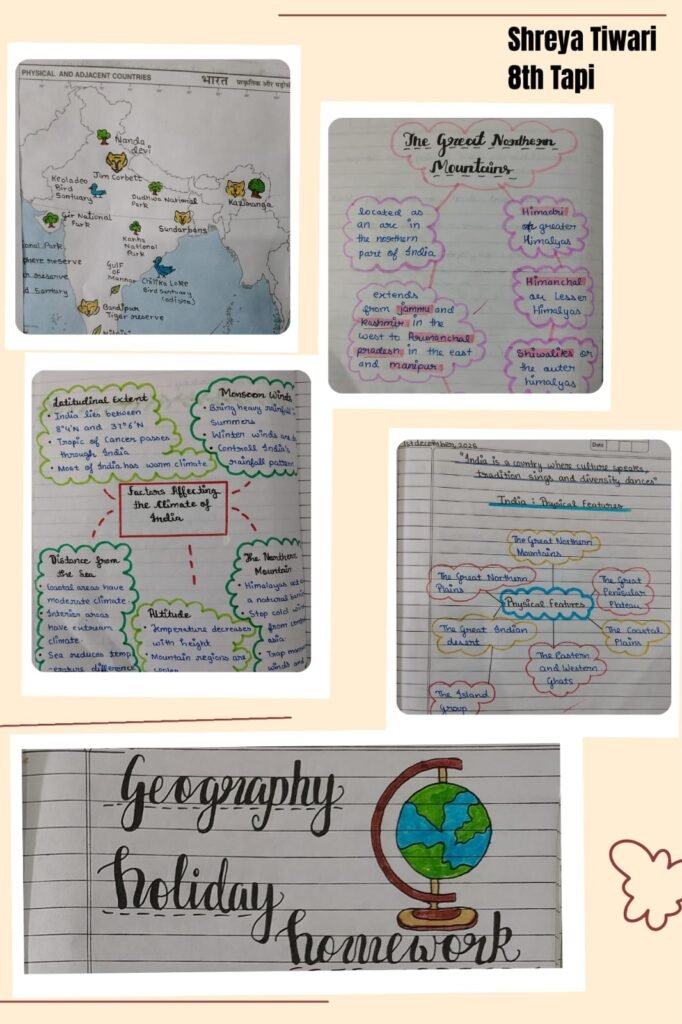 Shreya Tiwari
8th Tapi
PHYSICAL AND ADJACENT COUNTRIES
भारत
Nanda
devi
Jim Corbett
Keoladeo
Bird
Santuary
Dudhwa National
Park
Kaziranga
Gir National
Park
Sundarbans
Kanha
National
Park
onal Park
phere reserve
reserve
d. Santuary
Gulf
of
Mannar
Chilika Lake
Bird Santuary
(odisha)
Bandipur
Tiger reserve
The Great Northern
Mountains
located as
an arc in
the northern
part of India
extends
from jammu and
kashmir in the
west to Arumanchal
pradesh in the east
and manipur
Himadri
or greater
Himalyas
Himanchal
or Lesser
Himalyas
Shiwaliks or
the outer
himalyas
Latitudinal Extent
• India lies between
8°4'N and 37°6'N
• Tropic of Cancer passes
through India
• Most of India has warm climate
Monsoon Winds
• Bring heavy rainfall
Summers
• Winter winds are
• Controll India's
rainfall pattern
Factors Affecting
the Climate of
India
Distance from
the Sea
• Coastal areas have
moderate climate
• Interior areas
have extream
climate
• Sea reduces temp
erature difference
Altitude
• Temperature decreases
with height
• Mountain regions are
cooler
The Northern
Mountain
• Himalayas act
a natural
• Stop cold
from
asia
• Trap
winds and
1st december, 2025
Date
"India is a country where culture speaks,
tradition sings and diversity dances"
India : Physical Features
The Great Northern
Mountains
The Great Northern
Plains
The Great
Penisular
Plateau
Physical Features
The Great Indian
desert
The Coastal
Plains
The Eastern
and Western
Ghats
The Island
Group
Geography
holiday
homework